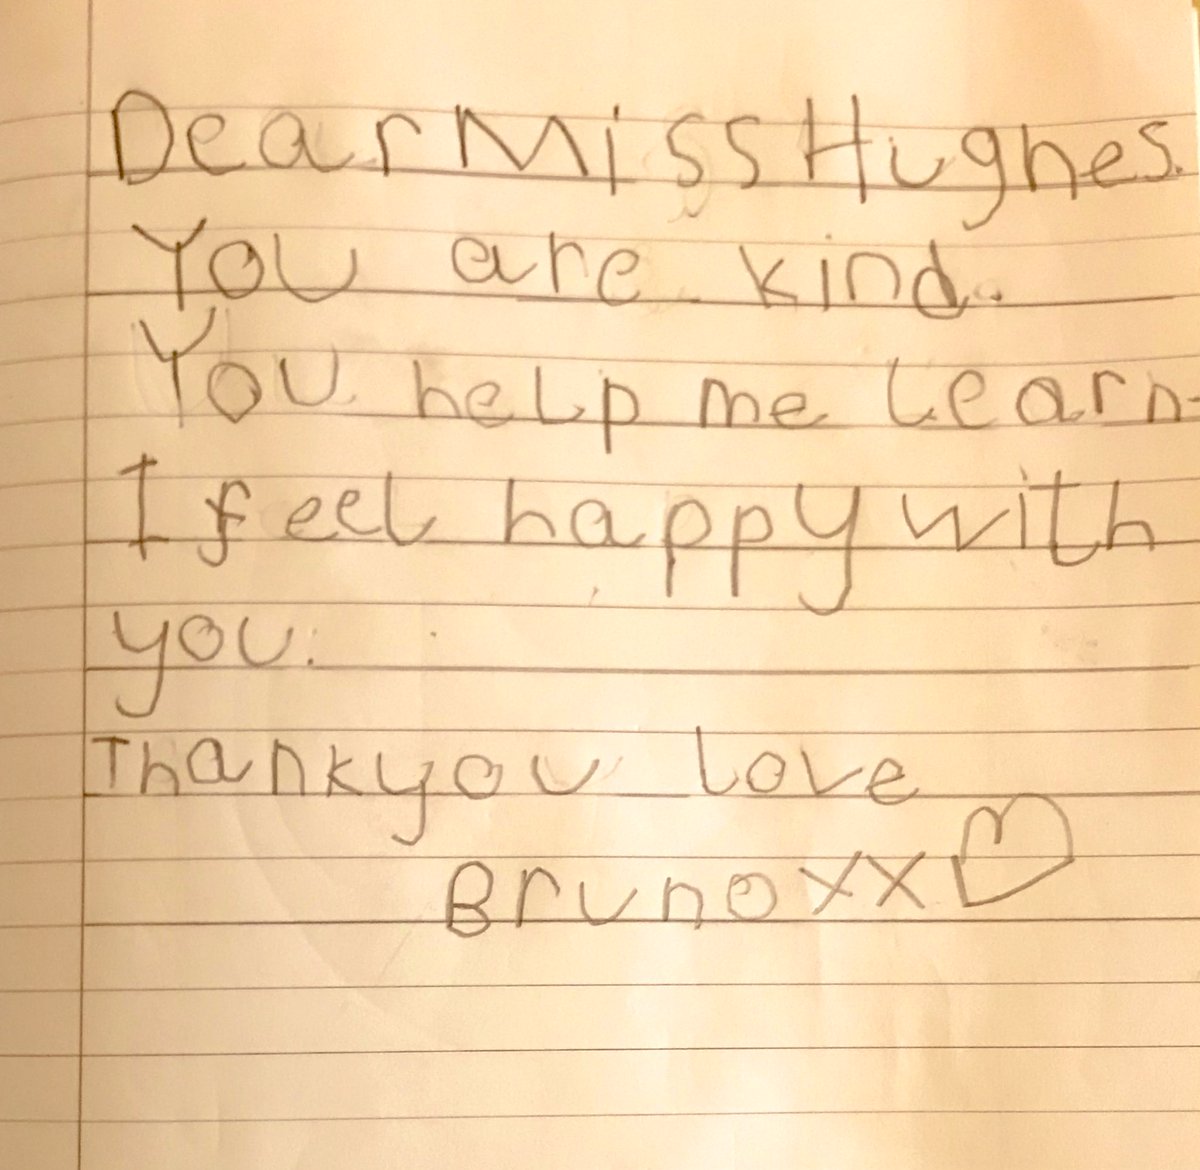 Dear Miss Hughes.
You are kind.
You help me learn.
I feel happy with
you.
Thankyou love
Bruno xx